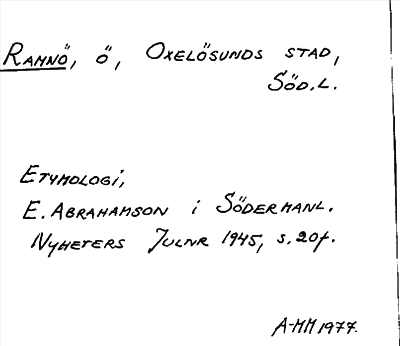 RAMNÖ, Ö, OXELÖSUNDS STAD,
SÖD.L.
ETYMOLOGI,
E. ABRAHAMSON i SÖDERMANL.
NYHETERS JULNR 1945, s. 20f.
A-MM 1977.